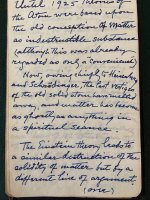 Until 1925 theories of
the Atom were based upon
the old conception of Matter
as indestructible substance
(although this was already
regarded as only a convenience)
Now, owing chiefly to Heisenberg
and Schroedinger, the last vestiges
of the old solid atom has melted
away, and matter has become
as ghostly as anything in
a spiritual seance.
The Einstein theory leads to
a similar destruction of the
solidity of matter but by a
different line of argument.
(over)